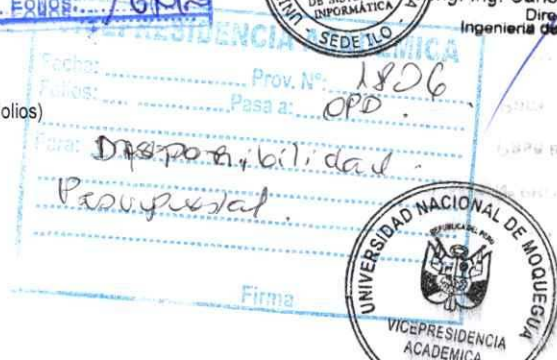 FOLIOS:
INFORMÁTICA
SEDE ILO
Ing.
Ingeniería de
VICEPRESIDENCIA ACADEMICA
Fecha: Prov. N°: 1826
Folios: Pasa a: OPD.
olios)
Para: Disponibilidad
Presupuestal.
Firma
UNIVERSIDAD NACIONAL DE MOQUEGUA
REPUBLICA DEL PERU
VICEPRESIDENCIA
ACADEMICA